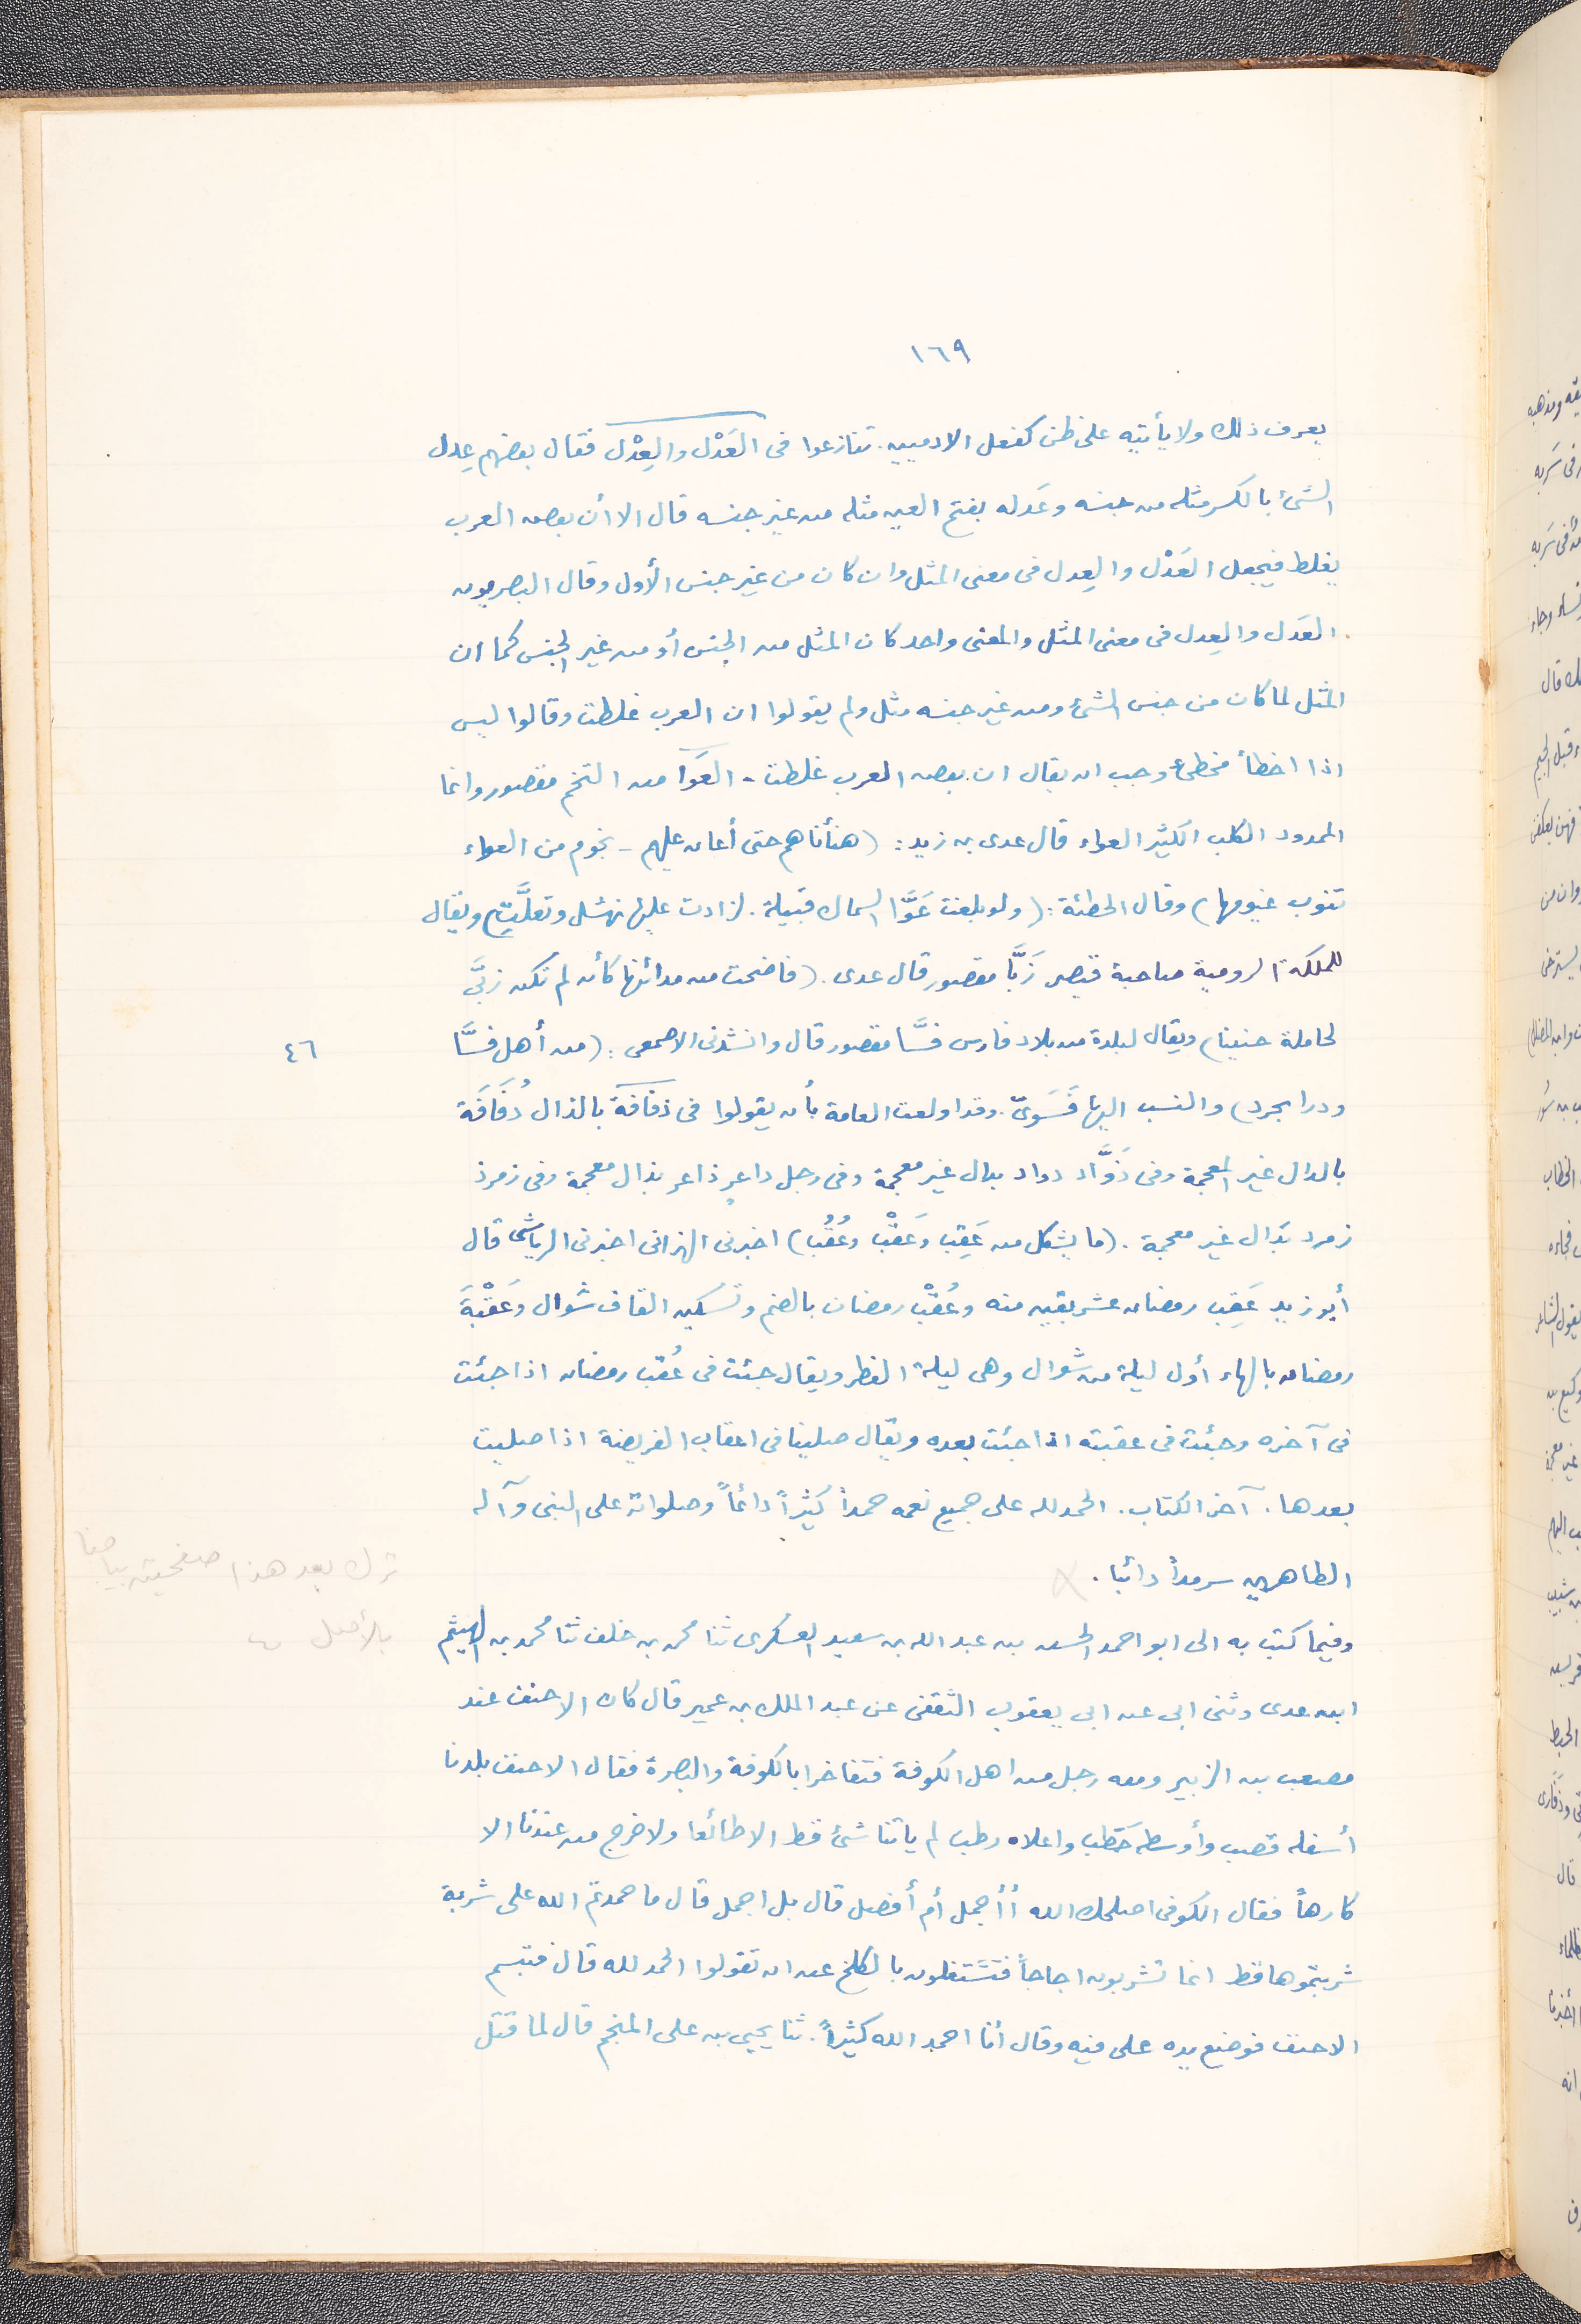 ١٦٩
يعرف ذلك ولا يأتيه على ظن كفعل الادميين. تنازعوا فى العَدْل والعِدْل فقال بعضهم عِدل
الشئ بالكسر مثله من جنسه وعَدله بفتح العين مثله من غير جنسه قال الا أن بعض العرب
يغلط فيجعل العَدْل والعِدل فى معنى المثل وان كان من غير جنس الأول وقال البصريون
العَدل والعِدل فى معنى المثل والمعنى واحد كان المثل من الجنس أو من غير الجنس كما ان
المثل لما كان من جنس الشئ ومن غير جنسه مثل ولم يقولوا ان العرب غلطت وقالوا ليس
اذا اخطأ مخطئ وجب ان يقال ان بعض العرب غلطت - العَوَّا من النجم مقصور وانما
الممدود الكلب الكثير العواء قال عدى بن زيد: (هنأناهم حتى أعان عليهم - نجوم من العواء
تنوب غيومها) وقال الحطئة: (ولو بلغت عَوَّا السماك قبيلة. لزادت عليها نهشل وتعلَّتِ) ويقال
للملكة الرومية صاحبة قيصر زَبَّا مقصور قال عدى. (فاضحت من مدائنها كأن لم تكن زبَّى
لحاملة جنينا) ويقال لبلدة من بلاد فارس فسَّا مقصور قال وانشدنى الاصمعى: (من أهل فسَّا
٤٦
ودرابجرد) والنسب اليها فَسَوىّ. وقد اولعت العامة بأن يقولوا فى ذفافة بالذال دُفَافَة
بالدال غير المعجمة وفى ذَوَّاد دواد بدال غير معجمة وفى رجل داعر ذاعر بذال معجمة وفى زمرذ
زمرد بدال غير معجمة. (ما يشكل من عَقِب وعَقْب وعُقُب) اخبرنى الهزانى اخبرنى الرياشى قال
أبو زيد عَقِب رمضان عشر بقين منه وعُقْب رمضان بالضم وتسكين القاف شوال وعَقْبَة
رمضان بالهاء أول ليلة من شوال وهى ليلة الفطر ويقال جئت فى عُقب رمضان اذا جئت
فى آخره وجئت فى عقبته اذا جئت بعده ويقال صلينا فى اعقاب الفريضة اذا صليت
بعدها. آخر الكتاب. الحمد لله على جميع نعمه حمداً كثيراً دائماً وصلواته على النبى وآله
الطاهرين سرمداً دائبا.
ترك بعد هذا صفحتين بياضا
بالأصل
وفيما كتب به الى ابو احمد الحسن بن عبد الله بن سعيد العسكرى ثنا محمد بن خلف ثنا محمد بن الهيثم
ابن عدى وثنى ابى عن ابى يعقوب الثقفى عن عبد الملك بن عمير قال كان الاحنف عند
مصعب بن الزبير ومعه رجل من اهل الكوفة فتفاخرا بالكوفة والبصرة فقال الاحنف بلدنا
أسفله قصب وأوسطه حَطَب واعلاه رطب لم ياتنا شئ قط الا طائعا ولا خرج من عندنا الا
كارهاً فقال الكوفى اصلحك الله أأجمل أم أفضل قال بل اجمل قال ما حمدتم الله على شربة
شربتموها قط انما تشربون اجاجاً فتشتغلون بالكلح عن ان تقولوا الحمد لله قال فتبسم
الاحنف فوضع يده على فيه وقال أنا احمد الله كثيراً. ثنا يحيى بن على المنجم قال لما قتل